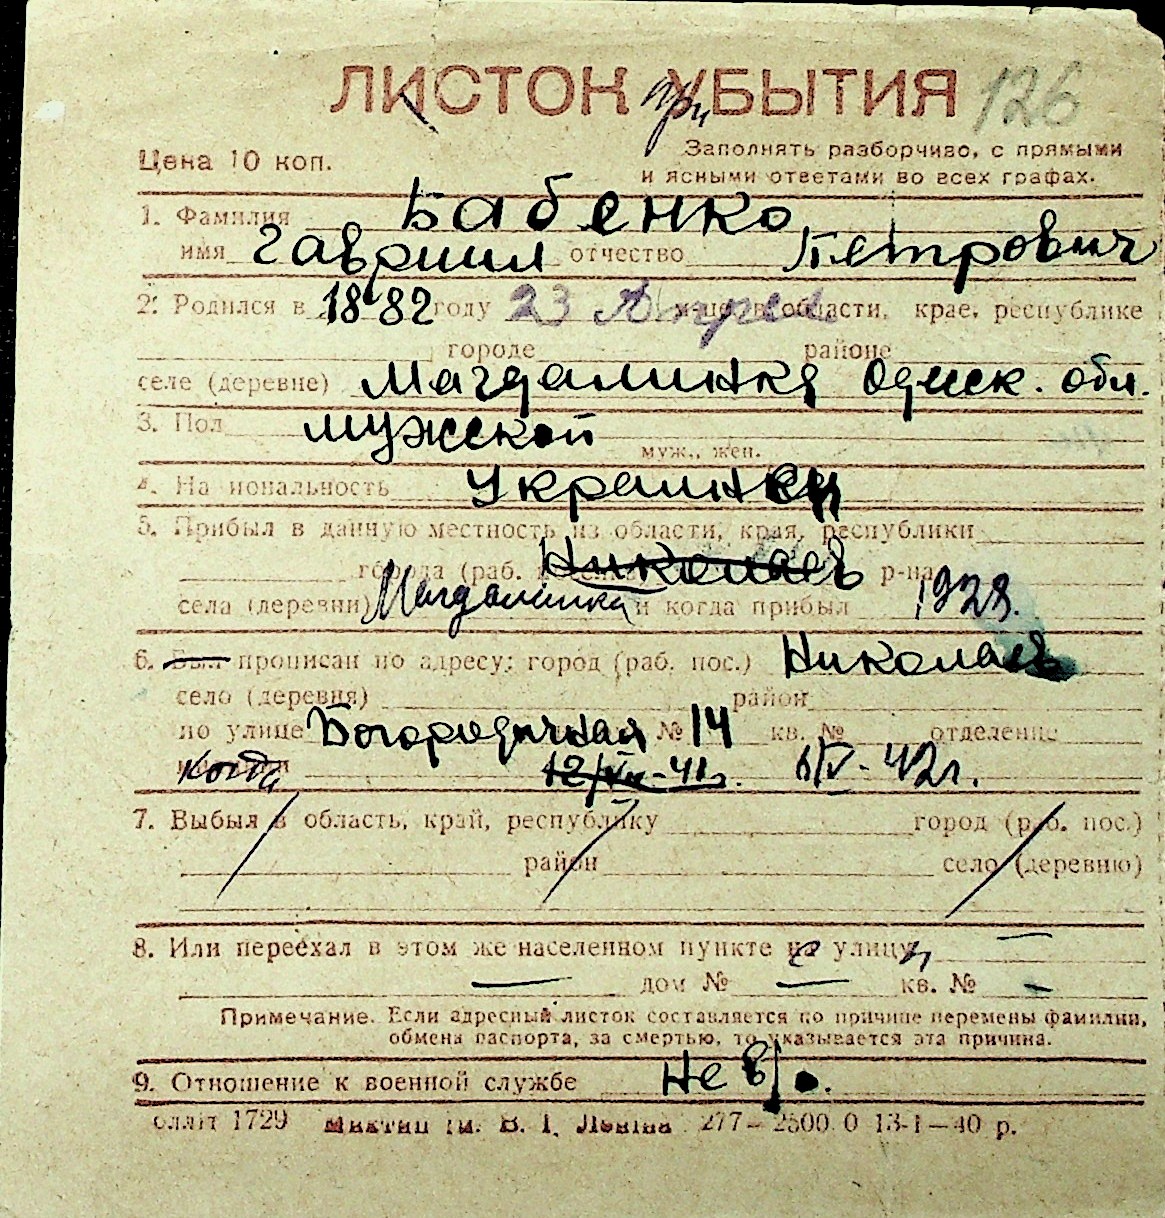 ЛИСТОК УБЫТИЯ 126
при
Цена 10 коп.
Заполнять разборчиво, с прямыми
и ясными ответами во всех графах.
1. Фамилия Бабенко
имя Гавриил отчество Петрович
2. Родился в 1882 году 23 Апрел м-це, в области, крае, республике
городе районе
селе (деревне) Магдалинка Одесск. обл.
3. Пол мужской
муж., жен.
4. Национальность Украинец
5. Прибыл в данную местность из области, края, республики
города (раб. Николаев р-на
села (деревни) Магдалинка и когда прибыл 1928.
6. Был прописан по адресу: город (раб. пос.) Николаев
село (деревня) район
по улице Богородичная № 14 кв. № отделение
когда 12/VII-41г. 6/V-42г.
7. Выбыл в область, край, республику город (раб. пос.)
район село (деревню)
8. Или переехал в этом же населенном пункте на улицу
дом № кв. №
Примечание. Если адресный листок составляется по причине перемены фамилии,
обмена паспорта, за смертью, то указывается эта причина.
9. Отношение к военной службе не в/о.
1729 ім. В. І. Леніна 277—2500.0 13-I—40 р.